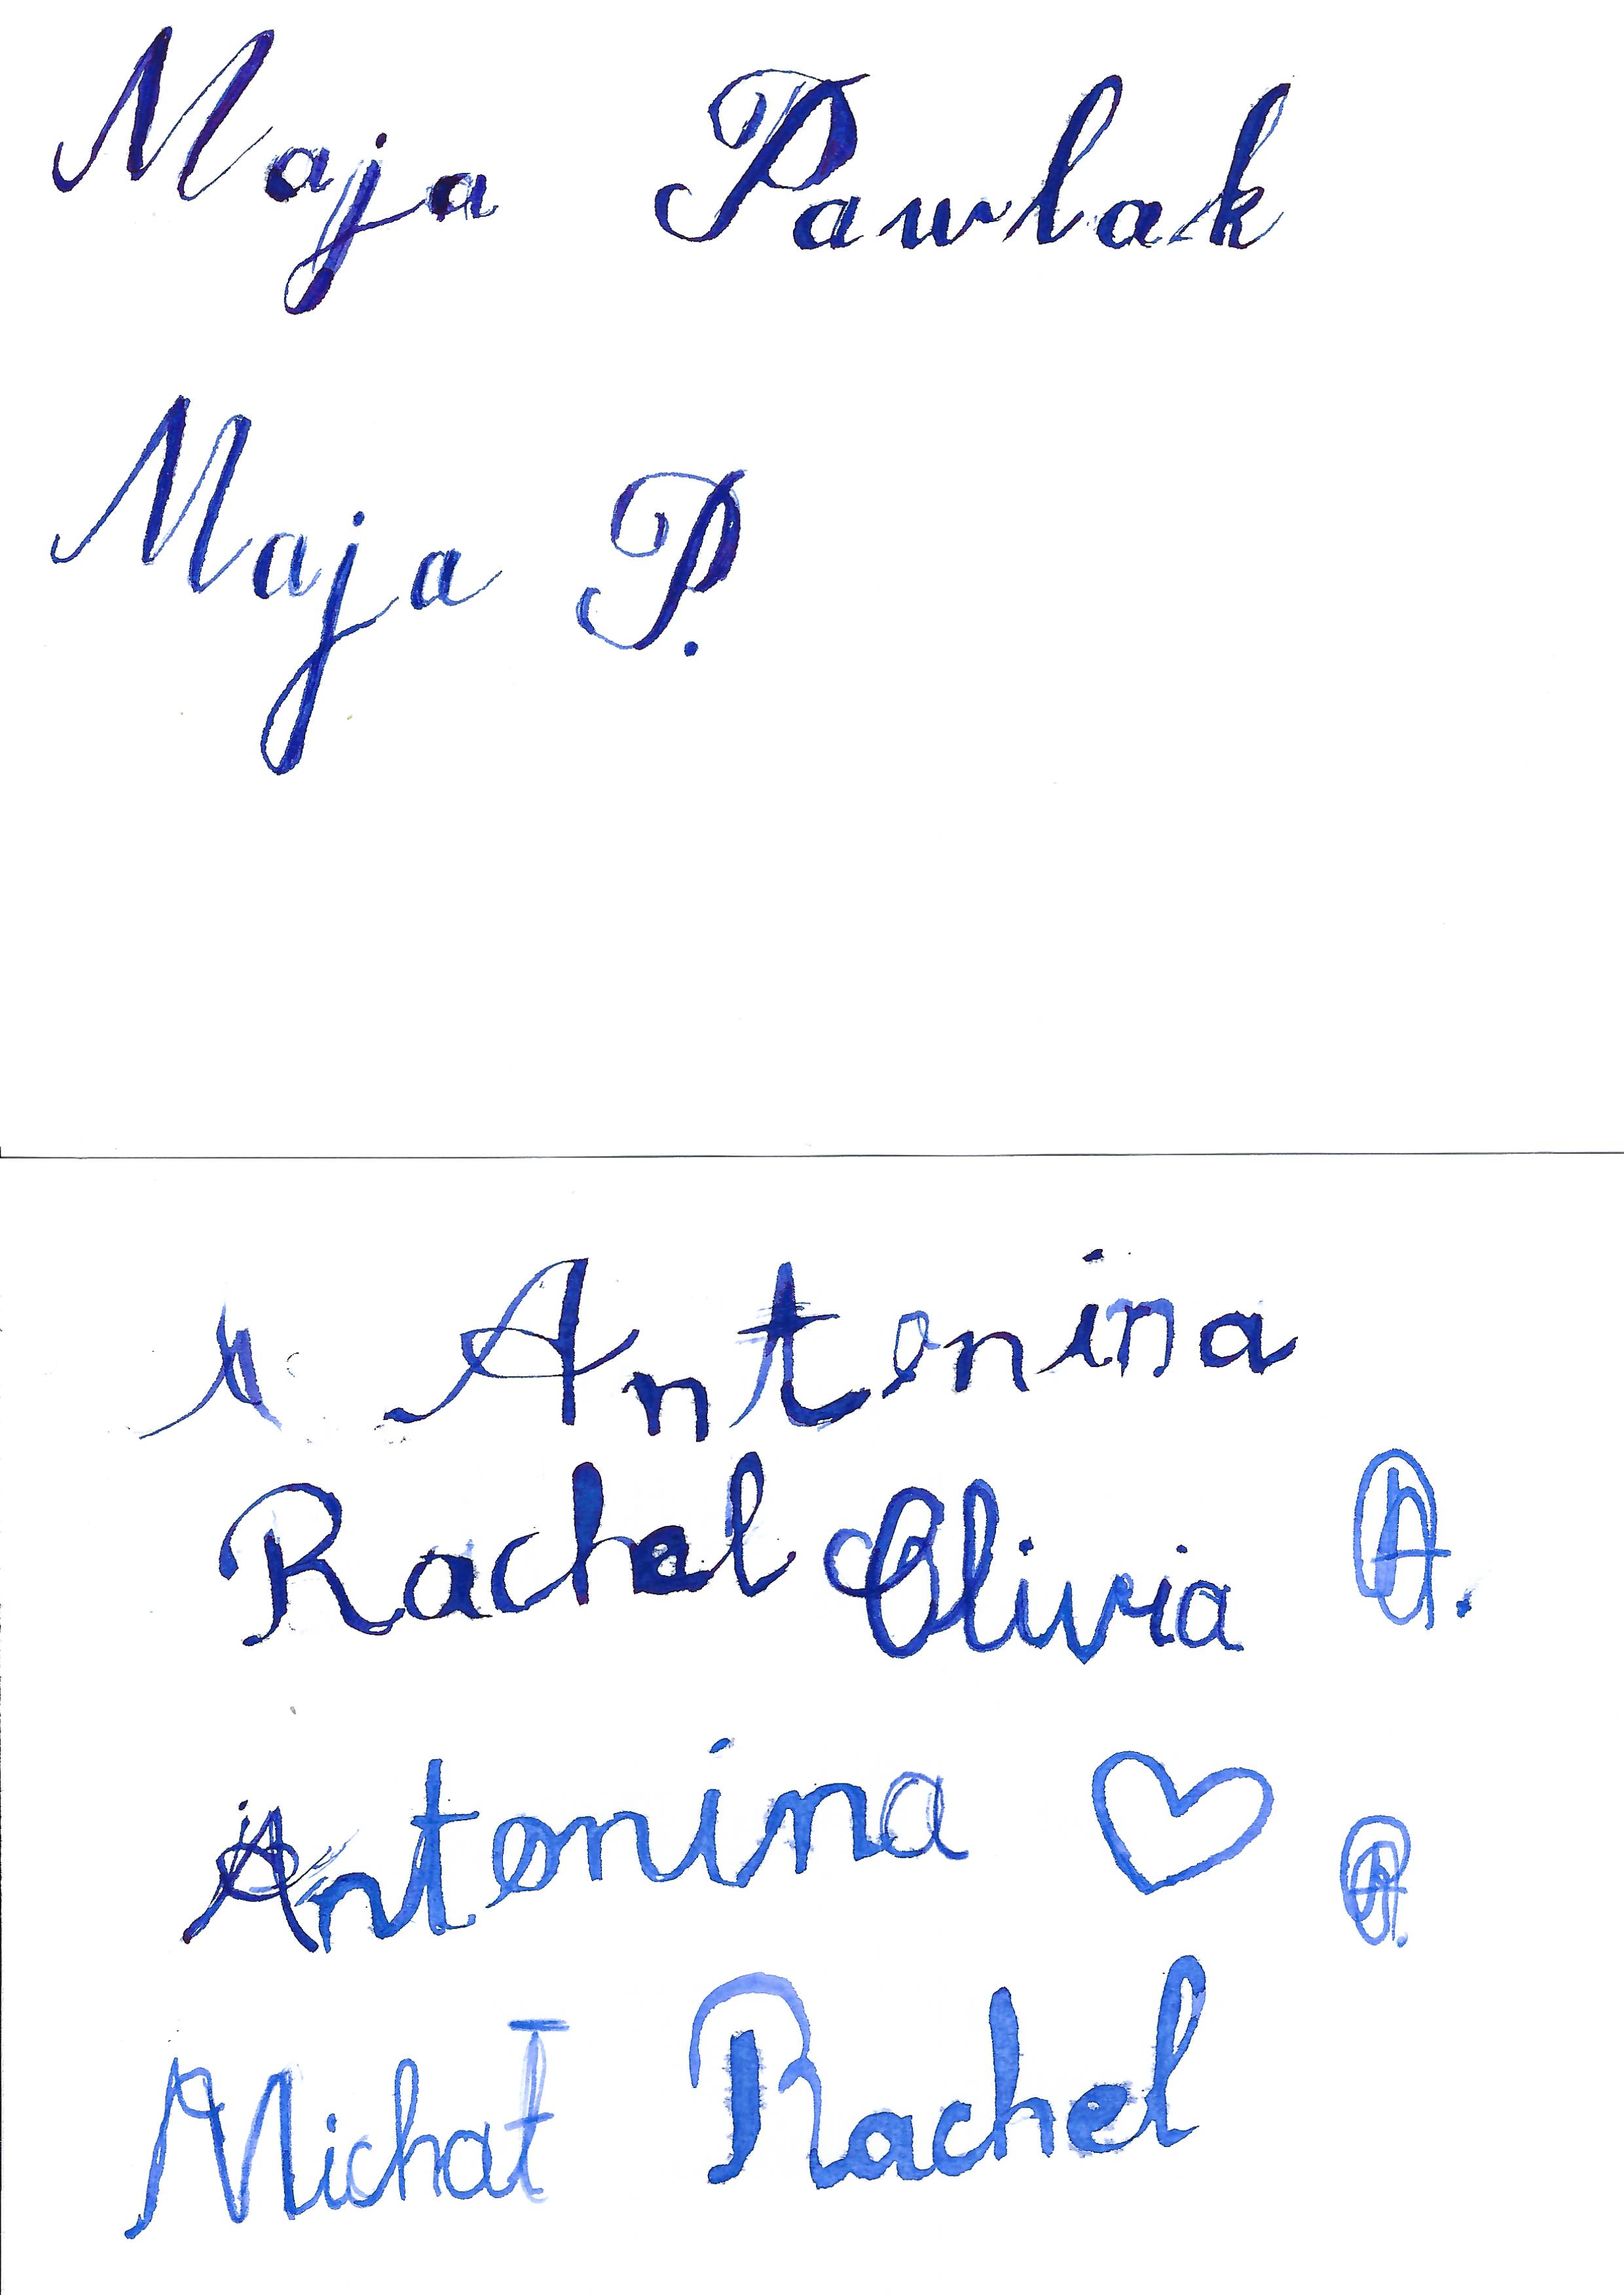 Maja Pawlak
Maja P.
A Antonina
Rachel Olivia A.
Antonina
Michał Rachel